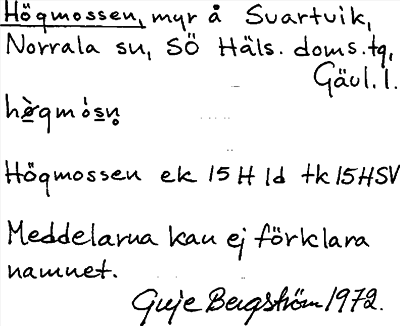 Högmossen, myr å Svartvik,
Norrala sn, SÖ Häls. doms.tg,
Gävl. l.
Högmossen ek 15 H 1d tk 15HSV
Meddelarna kan ej förklara
namnet.
Guje Bergström 1972.